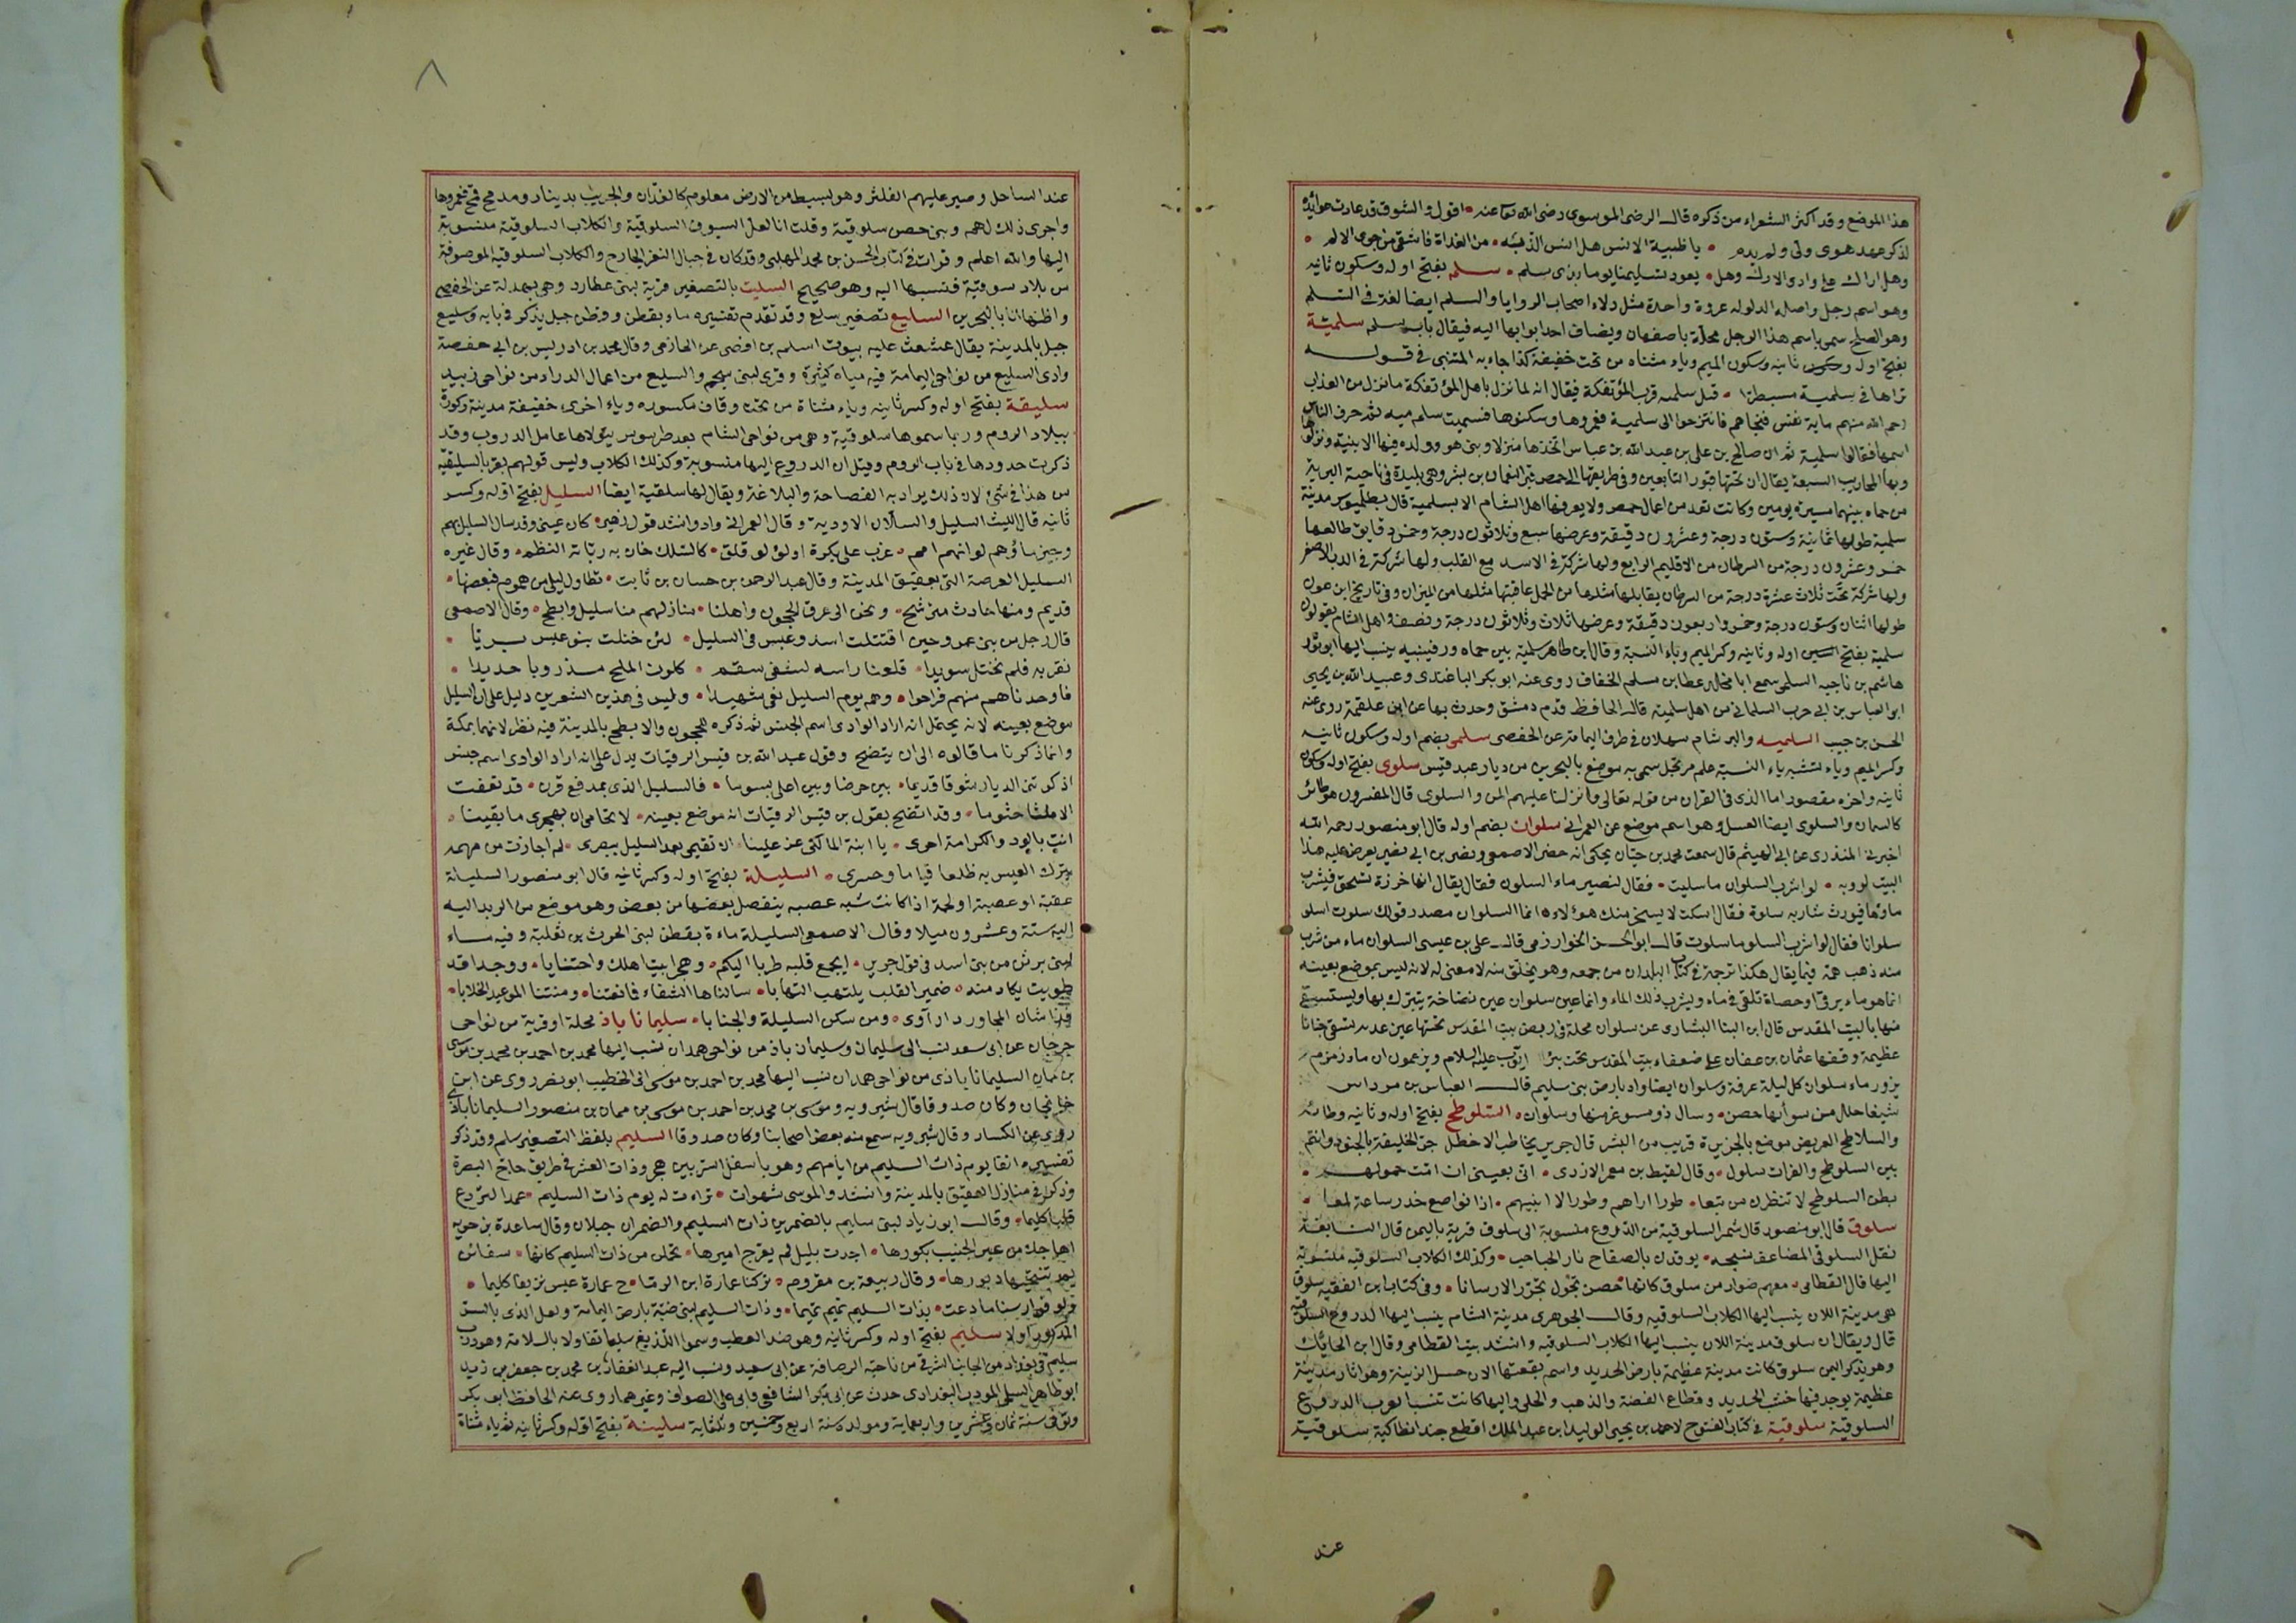 هذا الموضع وقد اكثر الشعراء من ذكره قال الرضى الموسوى رضى الله تعا عنه اقول والشوق قد عادت عوايده
لذكر عهد هوى ولى ولم يدم يا ظبية الانس هل انس الذ به من الغداة فاشفى من جوى الالم
وهل اراك على وادى الاراك وهل يعود تسليمنا يوما بذى سلم سلم بفتح اوله وسكون ثانيه
وهو اسم رجل واصله الدلو له عروة واحدة مثل دلاء اصحاب الروايا والسلم ايضا لغة فى السلم
وهو الصلح سمى باسم هذا الرجل محلة باصفهان ويضاف احد ابوابها اليه فيقال باب سلم سلمية
بفتح اوله وسكون ثانيه وسكون الميم وياء مثناه من تحت خفيفة كذا جاء به المتنبى فى قوله
تراها فى سلمية مسبطرا قيل سلمية قرب المؤتفكة فيقال انه لما نزل باهل المؤتفكة ما نزل من العذاب
رحم الله منهم ماية نفس فنجاهم فانتزحوا الى سلمية فعمروها وسكنوها فسميت سلم ميه ثم حرف الناس
اسمها فقالوا سلمية ثم ان صالح بن على بن عبد الله بن عباس اتخذها منزلا وبنى هو وولده فيها الابنية ونزلوها
وبها المحاريب السبعة يقال ان تحتها قبور التابعين وفى طريقها الى حمص قبر النعمان بن بشر وهى بليدة فى ناحية البرية
من حماه بينهما مسيرة يومين وكانت تعد من اعمال حمص ولا يعرفها اهل الشام الا بسلمية قال بطلميوس مدينة
سلمية طولها ثمانية وستون درجة وعشرون دقيقة وعرضها سبع وثلاثون درجة وخمس دقايق طالعها
خمس وعشرون درجة من السرطان من الاقليم الرابع ولها شركة فى الاسد مع القلب ولها شركة فى الدب الاصغر
ولها شركة تحت ثلاث عشرة درجة من السرطان يقابلها مثلها من الجمل عاقبتها مثلها من الميزان وفى تاريخ ابن عون
طولها اثنان وستون درجة وخمس واربعون دقيقة وعرضها ثلاث وثلاثون درجة ونصف واهل الشام يقولون
سلمية بفتح السين اوله وثانيه وكسر الميم وياء النسبة وقال ابن طاهر سلمية بين حماه ورفينيه ينسب اليها ابو ثور
هاشم بن ناجيه السلمى سمع ابا مخلد عطا بن مسلم الخفاف روى عنه ابو بكر الباغندى وعبيد الله بن يحيى
ابو العباس بن ابى حرب السلمانى من اهل سلمية قال الحافظ قدم دمشق وحدث بها عن ابن علقمة روى عنه
الحسن بن حبيب السلميه سهلان فى طرف اليمامة عن الحفصى سلمى بضم اوله وسكون ثانيه
وكسر الميم وياء تشبه ياء النسبة علم مرتجل سمى به موضع بالبحرين من ديار عبد قيس سلوى بفتح اوله وسكون
ثانيه واخره مقصور اما الذى فى القران من قوله تعالى وانزلنا عليهم المن والسلوى قال المفسرون هو طائر
كالسمان والسلوى ايضا العسل وهو اسم موضع عن العمرانى سلوان بضم اوله قال ابو منصور رحمه الله
اخبرنى المنذرى عن ابى الهيثم قال سمعت محمد بن حيان يحكى انه حضر الاصمعى ونضر بن ابى نضير يعرض عليه هذا
البيت لروبه لو اشرب السلوان ما سليت فقال لنصير ماء السلون فقال يقال انها خرزة تسحق فيشرب
ماؤها فيورث شاربه سلوة فقال اسكت لا يسخر منك هؤلاء انما السلوان مصدر قولك سلوت اسلو
سلوانا فقال لو اشرب السلو ما سلوت قال ابو الحسن الخوارزمى قال على بن عيسى السلوان ماء من شرب
منه ذهب همه فيما يقال هكذا ترجمة فى كتاب البلدان من جمعه وهو تخلق منه لا معنى له لانه ليس بموضع بعينه
انما هو ماء يرقى او حصاة تلقى فى ماء ويشرب ذلك الماء وانما عين سلوان عين نضاخة يتبرك بها ويستشفى
منها بالبيت المقدس قال ابن البنا البشارى عن سلوان محلة فى ربض بيت المقدس تحتها عين عدبه تسقى جنانا
عظيمة وقفها عثمان بن عفان على ضعفاء بيت المقدس تحت بئر ايوب عليه السلام ويزعمون ان ماء زمزم
يزور ماء سلوان كل ليلة عرفة وسلوان ايضا واد بارض بنى سليم قال العباس بن مرداس
شنعا جلل من سوأتها حضن وسال ذو شوغر منها وسلوان السلوطح بفتح اوله وثانيه وطائه
والسلاطح العريض موضع بالجزيرة قريب من البشر قال جرير يخاطب الاخطل جر الخليفة بالجنود وانتم
بين السلوطح والفرات سلول وقال لقيط بن معمر الازدى انى بعينى ان امت حمولهم
بطن السلوطح لا تنظرن من تبعا طورا اراهم وطورا لا ابينهم اذا تواضع خدر ساعة لمعا
سلوق قال ابو منصور قال شمر السلوقية من الدروع منسوبة الى سلوق قرية باليمن قال النابغة
تقد السلوقى المضاعف نسجه يوقدن بالصفاح نار الحباحب وكذلك الكلاب السلوقيه منسوبة
اليها قال القطامى معهم ضوار من سلوق كانها حصن تجول تجرر الارسانا وفى كتاب ابن الفقيه سلوق
هى مدينة اللان ينسب اليها الكلاب السلوقيه وقال الجوهرى مدينة الشام ينسب اليها الدروع السلوقية
قال ويقال ان سلوق مدينة اللان ينسب اليها الكلاب السلوقيه وانشد بيت القطامى وقال ابن الحائك
وهو يذكر اليمن سلوق كانت مدينة عظيمة بارض الحديد واسم بقعتها الان حسل الزينة وهو اثار مدينة
عظيمة يوجد فيها خبث الحديد وقطاع الفضة والذهب والحلى واليها كانت تنسب العرب الدروع
السلوقية سلوقية فى كتاب الفتوح لاحمد بن يحيى الوليد بن عبد الملك اقطع جند انطاكية سلوقية
عند
٨
عند الساحل وصير عليهم الفلثر وهو بسيط من الارض معلوم كالفدان والجريب بدينار ومدى قمح فعمروها
واجرى ذلك لهم وبنى حصن سلوقية وقلت انا لعل السيوف السلوقية والكلاب السلوقية منسوبة
اليها والله اعلم وقرات فى كتاب الحسن بن محمد المهلبى وقد كان فى جبال الثغر الجارح والكلاب السلوقية الموصوفة
من بلاد سوقية فنسبها اليه وهو صحيح السليت بالتصغير قرية لبنى عطارد وهى بهدلة عن الحفصى
واظنها انا بالبحرين السليع تصغير سلع وقد تقدم تفسيره ماء بقطن وقطن جبل يذكر فى بابه وسليع
جبل بالمدينة يقال عثعث عليه بيوت اسلم بن افصى عن الحازمى وقال محمد بن ادريس بن ابى حفصة
وادى السليع من نواحى اليمامة فيه مياه كثيرة وقرى لبنى سحيم والسليع من اعمال الدراد من نواحى زبيد
سليقة بفتح اوله وكسر ثانيه وياء مثناة من تحت وقاف مكسوره وياء اخرى خفيفة مدينة وكورة
ببلاد الروم وربما سموها سلوقية وهى من نواحى الشام بعد طرسوس يتولاها عامل الدروب وقد
ذكرت حدودها فى باب الروم وقيل ان الدروع اليها منسوبة وكذلك الكلاب وليس قولهم يقرا بالسليقية
من هذا فى شئ لان ذلك يراد به الفصاحة والبلاغة ويقال لها سلقية ايضا السليل بفتح اوله وكسر
ثانيه قال الليث السليل والسلان الاودية وقال العمرانى واد وانشد قول زهير كان عينى وقد سال السليل بهم
وجيرة ما هم لو انهم امم غرب على بكرة او لؤلؤ قلق كالسلك خان به رباته النظم وقال غيره
السليل العرصة التى بعقيق المدينة وقال عبد الرحمن بن حسان بن ثابت تطاول ليلى من هموم فبعضها
قديم ومنها حادث مترشح وتحن الى عرق الحجون واهلنا منازلهم منا سليل وابطح وقال الاصمعى
قال رجل من بنى عمرو حين اقتتلت اسد وعبس فى السليل لئن ختلت بنو عبس بريا
بغرة فلم نختل سويدا قلعنا راسه لسفى سقم كلون الملح مذروبا حديدا
فاوحدناهم منهم فراحوا وهم يوم السليل نعى شهيدا وليس فى هذين الشعرين دليل على ان السليل
موضع بعينه لانه يحتمل انه اراد الوادى اسم الجنس ثم ذكره للحجون والابطح بالمدينة فيه نظر لانهما بمكة
وانما ذكرنا ما قالوه الى ان يتضح وقول عبد الله بن قيس الرقيات يدل على انه اراد الوادى اسم جنس
اذكرتنى الديار شوقا قديما بين حرضا وبين اعلى يسوما فالسليل الذى بمدفع قرن قد تعفت
الا ثلثا جثوما وقد اتضح بقول بن قيس الرقيات انه موضع بعينه لا تخامى ان تهجرى ما بقينا
انت بالود والكرامة احرى يا ابنة المالكى عز علينا ان تقيمى بعد السليل ببصرى كم اجازت من مهمه
يترك العيس به ظلعا قياما وحسرى السليلة بفتح اوله وكسر ثانيه قال ابو منصور السليلة
عقبة او عصبة او لحمة اذا كانت شبه عصبه ينفصل بعضها من بعض وهو موضع من الربد اليه
اليه ستة وعشرون ميلا وقال الاصمعى السليلة ماءة بقطن لبنى الحرث بن ثعلبة وفيه ماء
لبنى برثن من بنى اسد فى قول جرير ايجمع قلبه طربا اليكم وهجرا بيتا هلك واجتنابا ووجدا قد
طويت يكاد منه ضمير القلب يلتهب التهابا سالناها الشفاء فا شفتنا ومنتنا المواعيد الخلابا
فشتان المجاور دار اوى ومن سكن السليلة والجنابا سليماناباذ محلة او قرية من نواحى
جرجان عن ابى سعد نسب الى سليمان وسليمان باذ من نواحى همدان نسب اليها محمد بن احمد بن محمد بن موسى
بن همان السليماناباذى من نواحى همدان ينسب اليها محمد بن احمد بن موسى ابى الخطيب ابو نصر روى عن ابن
خانجان وكان صدوقا قال شيرويه وموسى بن محمد بن احمد بن موسى بن همان بن منصور السليماناباذى
روى عن الكسار وقال شيرويه سمع منه بعض اصحابنا وكان صدوقا السليم بلفظ التصغير سلم وقد ذكر
تفسيره انفا يوم ذات السليم من ايامهم وهو باسفل السر بين هجر وذات العشر فى طريق حاج البصرة
وذكر فى منازل العقيق بالمدينة وانشد والموسى شهوات تراءت له يوم ذات السليم عمدا لتردع
قلبا كليما وقال ابو زياد لبنى سليم بالضمرين ذات السليم والضمران جبلان وقال ساعدة بن جويه
اهاجك من عير الحبيب بكورها اجدت بليل لم يعرج اميرها تحملن من ذات السليم كانها سفائن
يم تنتحيها دبورها وقال ربيعة بن مقروم تركنا عمارة ابن الرما ح عمارة عبس نزيفا كليما
ولولا فوارسنا ما دعت بذات السليم تميم تميما وذات السليم لبنى ضبة بارض اليمامة ولعل الذى بالسر
المذكور اولا سليم بفتح اوله وكسر ثانيه وهو ضد العطب وسموا اللذيغ سليما تفاولا بالسلامة وهو درب
سليم فى بغداد من الجانب الشرقى من ناحية الرصافة عن ابى سعيد ونسب اليه عبد الغفار بن محمد بن جعفر بن زيد
ابو طاهر السليمى المودب البغدادى حدث عن ابى بكر الشافعى وابى على الصواف وغيرهما روى عنه الحافظ ابو بكر
وتوفى سنة ثمان وعشرين واربعماية ومولده سنة اربع وخمسين وثلثماية سلينة بفتح اوله وكسر ثانيه ثم ياء مثناة